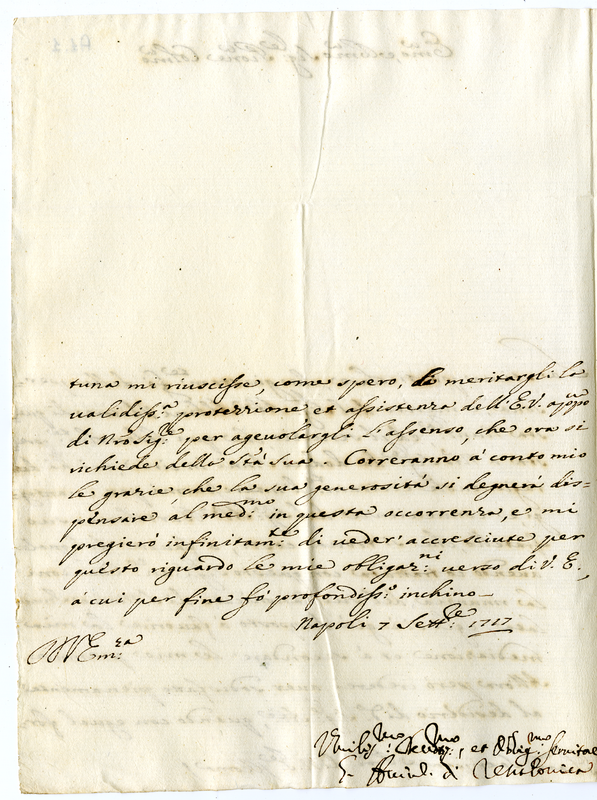 tuna mi riuscisse, come spero, di meritargli la
validiss.ª protezzione et assistenza dell'E.V. appo
di Nro Sig.re per agevolargli l'assenso, che ora si
richiede della Stà Sua. Correranno à conto mio
le grazie che la sua generosità si degnerà dis=
pensare al med.mo in questa occorrenza, e mi
pregierò infinitam.te di veder' accresciute per
questo riguardo le mie obligaz.ni verso di V. E.,
à cui per fine fò profondiss.º inchino_
Napoli 7 Sett.re 1717
Em.za
Umiliss.mo Devot.mo, et Oblig.mo Servitore
di